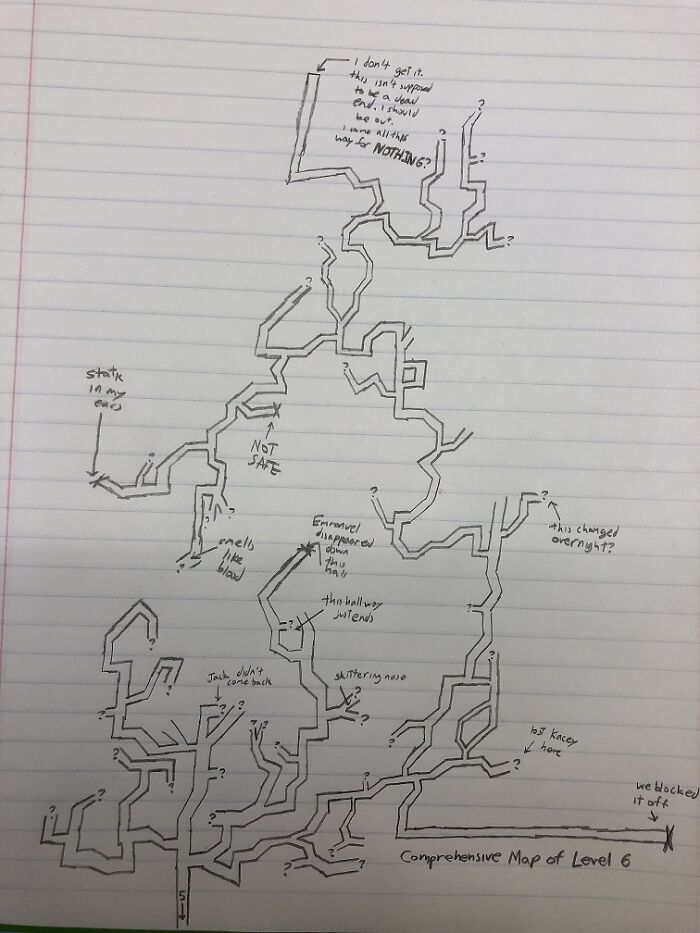 I don't get it.
this isn't supposed
to be a dead
end. I should
be out.
I came all this
way for NOTHING?
?
?
?
?
?
?
?
static
in my
ears
NOT
SAFE
?
?
?
?
?
smells
like
blood
?
?
this changed
overnight?
Emmanuel
disappeared
down
this
hall
this hallway
just ends
?
?
?
?
Jack didn't
come back
skittering noise
?
?
?
?
?
?
?
?
?
?
?
lost Kacey
here
?
?
?
?
?
?
?
we blocked
it off
Comprehensive Map of Level 6
?
?
5